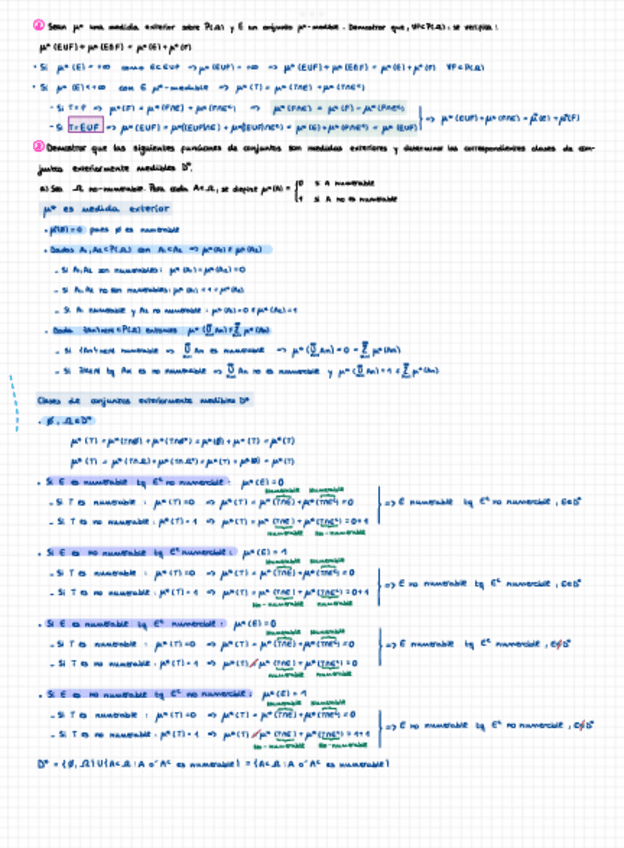 ① Sean μ* una medida exterior sobre P(Ω) y E un conjunto μ*-medible. Demostrar que, ∀F⊂P(Ω), se verifica:
μ*(E∪F)+μ*(E∩F) = μ*(E)+μ*(F)
· Si μ*(E)=+∞ como E⊂E∪F ⇒ μ*(E∪F)=+∞ ⇒ μ*(E∪F)+μ*(E∩F) = μ*(E)+μ*(F) ∀F⊂P(Ω)
· Si μ*(E)<+∞ con E μ*-medible ⇒ μ*(T) = μ*(T∩E)+μ*(T∩Eᶜ)
- Si T=F ⇒ μ*(F) = μ*(F∩E)+μ*(F∩Eᶜ) ⇒ μ*(F∩Eᶜ) = μ*(F)-μ*(F∩E)
- Si T=E∪F ⇒ μ*(E∪F) = μ*((E∪F)∩E)+μ*((E∪F)∩Eᶜ) = μ*(E)+μ*(F∩Eᶜ) = μ*(E∪F)
⇒ μ*(E∪F)+μ*(F∩E) = μ*(E)+μ*(F)
② Demostrar que las siguientes funciones de conjuntos son medidas exteriores y determinar las correspondientes clases de con-
juntos exteriormente medibles D*.
a) Sea Ω no-numerable. Para cada A⊂Ω, se define μ*(A) = {0 si A numerable
1 si A no es numerable
μ* es medida exterior
· μ*(∅)=0 pues ∅ es numerable
· Dados A₁,A₂⊂P(Ω) con A₁⊂A₂ ⇒ μ*(A₁)≤μ*(A₂)
- Si A₁,A₂ son numerables: μ*(A₁)=μ*(A₂)=0
- Si A₁,A₂ no son numerables: μ*(A₁)=1=μ*(A₂)
- Si A₁ numerable y A₂ no numerable: μ*(A₁)=0≤μ*(A₂)=1
· Dada {An}n∈N⊂P(Ω) entonces μ*(∪An)≤Σμ*(An)
- Si {An}n∈N numerable ⇒ ∪An es numerable ⇒ μ*(∪An)=0=Σμ*(An)
- Si ∃n∈N tq An es no numerable ⇒ ∪An no es numerable y μ*(∪An)=1≤Σμ*(An)
Clases de conjuntos exteriormente medibles D*
· ∅, Ω∈D*
μ*(T) = μ*(T∩∅)+μ*(T∩∅ᶜ) = μ*(∅)+μ*(T) = μ*(T)
μ*(T) = μ*(T∩Ω)+μ*(T∩Ωᶜ) = μ*(T)+μ*(∅) = μ*(T)
· Si E es numerable tq Eᶜ no numerable: μ*(E)=0
Numerable Numerable
- Si T es numerable: μ*(T)=0 ⇒ μ*(T) = μ*(T∩E)+μ*(T∩Eᶜ)=0
- Si T es no numerable: μ*(T)=1 ⇒ μ*(T) = μ*(T∩E)+μ*(T∩Eᶜ)=0+1
Numerable No-numerable
⇒ E numerable tq Eᶜ no numerable, E∈D*
· Si E es no numerable tq Eᶜ numerable: μ*(E)=1
Numerable Numerable
- Si T es numerable: μ*(T)=0 ⇒ μ*(T) = μ*(T∩E)+μ*(T∩Eᶜ)=0
- Si T es no numerable: μ*(T)=1 ⇒ μ*(T) = μ*(T∩E)+μ*(T∩Eᶜ)=0+1
No-numerable Numerable
⇒ E no numerable tq Eᶜ numerable, E∈D*
· Si E es numerable tq Eᶜ numerable: μ*(E)=0
Numerable Numerable
- Si T es numerable: μ*(T)=0 ⇒ μ*(T) = μ*(T∩E)+μ*(T∩Eᶜ)=0
- Si T es no numerable: μ*(T)=1 ⇒ μ*(T) ≠ μ*(T∩E)+μ*(T∩Eᶜ)=0
Numerable Numerable
⇒ E numerable tq Eᶜ numerable, E∉D*
· Si E es no numerable tq Eᶜ no numerable: μ*(E)=1
Numerable Numerable
- Si T es numerable: μ*(T)=0 ⇒ μ*(T) = μ*(T∩E)+μ*(T∩Eᶜ)=0
- Si T es no numerable: μ*(T)=1 ⇒ μ*(T) ≠ μ*(T∩E)+μ*(T∩Eᶜ)=1+1
No-numerable No-numerable
⇒ E no numerable tq Eᶜ no numerable, E∉D*
D* = {∅, Ω}∪{A⊂Ω: A o Aᶜ es numerable} = {A⊂Ω: A o Aᶜ es numerable}